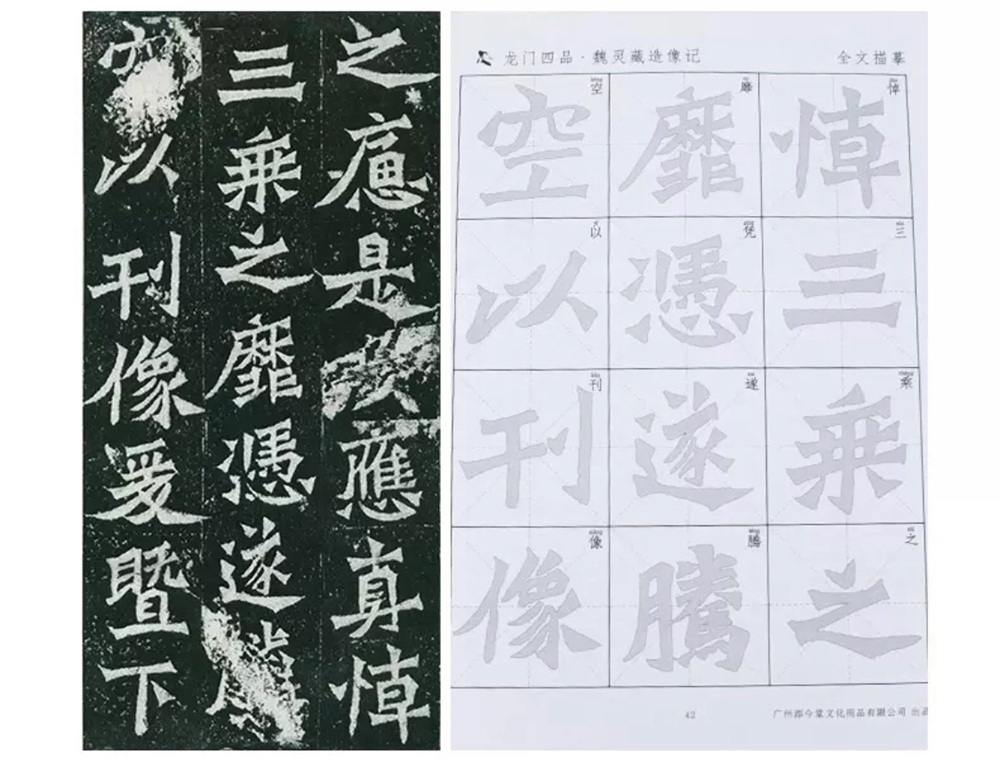 之 是以應真悼
三乘之靡憑遂騰
空以刊像爰暨下
龙门四品·魏灵藏造像记
全文描摹
悼三乘之
靡憑遂騰
空以刊像
悼
三
乘
之
靡
凭
遂
腾
空
以
刊
像
42
广州 今堂文化用品有限公司 出品